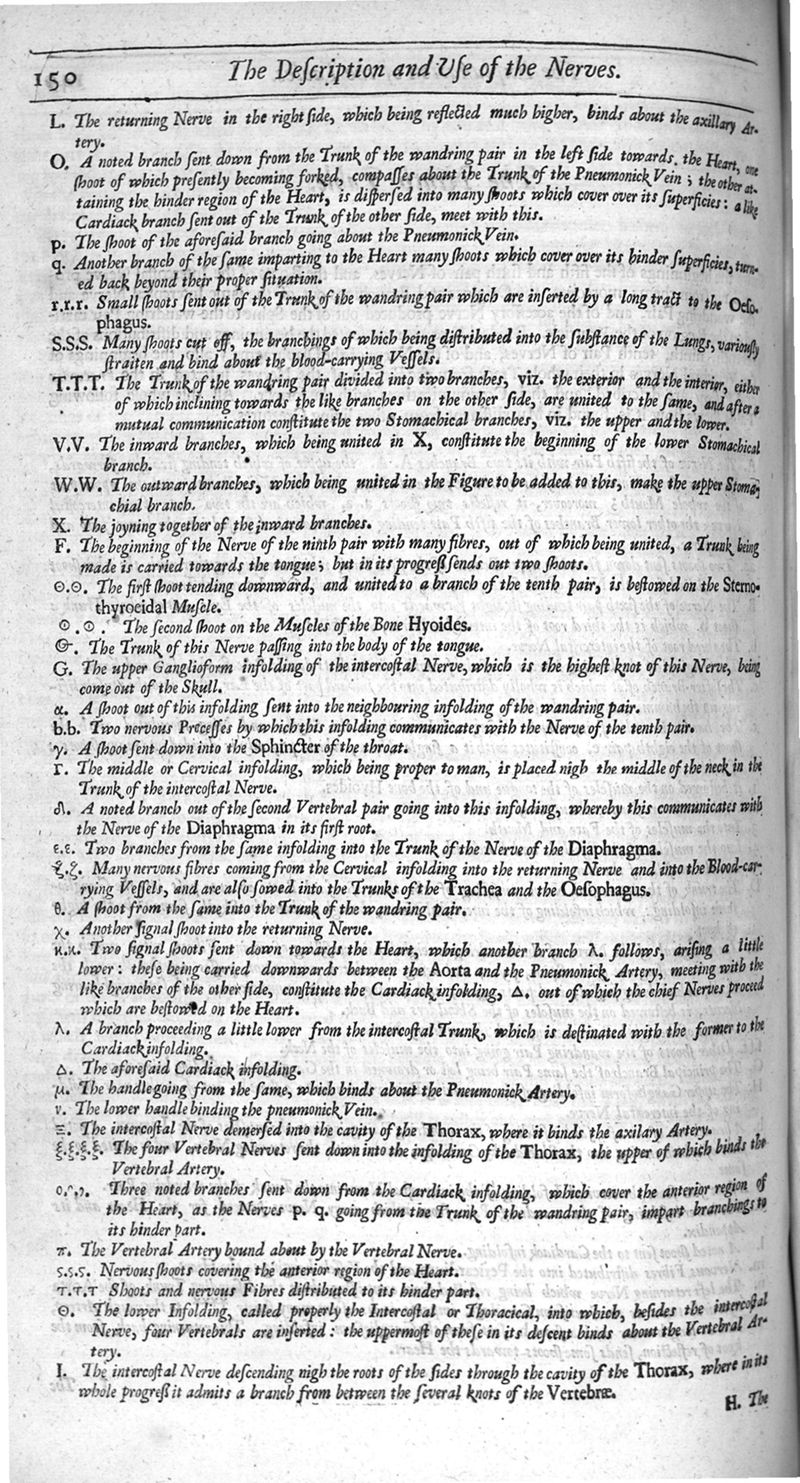 150 The Deſcription and Uſe of the Nerves.
L. The returning Nerve in the right ſide, which being reflected much higher, binds about the axillary Ar-
tery.
O. A noted branch ſent down from the Trunk of the wandring pair in the left ſide towards the Heart, one
ſhoot of which preſently becoming forked, compaſſes about the Trunk of the Pneumonick Vein; the other at-
taining the hinder region of the Heart, is diſperſed into many ſhoots which cover over its ſuperficies: a like
Cardiack branch ſent out of the Trunk of the other ſide, meet with this.
p. The ſhoot of the aforeſaid branch going about the Pneumonick Vein.
q. Another branch of the ſame imparting to the Heart many ſhoots which cover over its hinder ſuperficies, turn-
ed back beyond their proper ſituation.
r.r.r. Small ſhoots ſent out of the Trunk of the wandring pair which are inſerted by a long tract to the Oeſo-
phagus.
S.S.S. Many ſhoots cut off, the branchings of which being diſtributed into the ſubſtance of the Lungs, variouſly
ſtraiten and bind about the blood-carrying Veſſels.
T.T.T. The Trunk of the wandring pair divided into two branches, viz. the exterior and the interior, either
of which inclining towards the like branches on the other ſide, are united to the ſame, and after a
mutual communication conſtitute the two Stomachical branches, viz. the upper and the lower.
V.V. The inward branches, which being united in X, conſtitute the beginning of the lower Stomachical
branch.
W.W. The outward branches, which being united in the Figure to be added to this, make the upper Stoma-
chial branch.
X. The joyning together of the inward branches.
F. The beginning of the Nerve of the ninth pair with many fibres, out of which being united, a Trunk being
made is carried towards the tongue; but in its progreſſ ſends out two ſhoots.
Θ.Θ. The firſt ſhoot tending downward, and united to a branch of the tenth pair, is beſtowed on the Sterno-
thyroeidal Muſcle.
☉.☉. The ſecond ſhoot on the Muſcles of the Bone Hyoides.
The Trunk of this Nerve paſſing into the body of the tongue.
G. The upper Ganglioform infolding of the intercoſtal Nerve, which is the higheſt knot of this Nerve, being
come out of the Skull.
α. A ſhoot out of this infolding ſent into the neighbouring infolding of the wandring pair.
b.b. Two nervous Proceſſes by which this infolding communicates with the Nerve of the tenth pair.
γ. A ſhoot ſent down into the Sphincter of the throat.
Γ. The middle or Cervical infolding, which being proper to man, is placed nigh the middle of the neck in the
Trunk of the intercoſtal Nerve.
δ. A noted branch out of the ſecond Vertebral pair going into this infolding, whereby this communicates with
the Nerve of the Diaphragma in its firſt root.
ε.ε. Two branches from the ſame infolding into the Trunk of the Nerve of the Diaphragma.
ζ.ζ. Many nervous fibres coming from the Cervical infolding into the returning Nerve and into the Blood-car-
rying Veſſels, and are alſo ſowed into the Trunks of the Trachea and the Oeſophagus.
θ. A ſhoot from the ſame into the Trunk of the wandring pair.
χ. Another ſignal ſhoot into the returning Nerve.
κ.κ. Two ſignal ſhoots ſent down towards the Heart, which another branch λ. follows, ariſing a little
lower: theſe being carried downwards between the Aorta and the Pneumonick Artery, meeting with the
like branches of the other ſide, conſtitute the Cardiack infolding, Δ. out of which the chief Nerves proceed
which are beſtowed on the Heart.
λ. A branch proceeding a little lower from the intercoſtal Trunk, which is deſtinated with the former to the
Cardiack infolding.
Δ. The aforeſaid Cardiack infolding.
μ. The handle going from the ſame, which binds about the Pneumonick Artery.
ν. The lower handle binding the pneumonick Vein.
Ξ. The intercoſtal Nerve demerſed into the cavity of the Thorax, where it binds the axilary Artery.
ξ.ξ.ξ.ξ. The four Vertebral Nerves ſent down into the infolding of the Thorax, the upper of which binds the
Vertebral Artery.
Three noted branches ſent down from the Cardiack infolding, which cover the anterior region of
the Heart, as the Nerves p. q. going from the Trunk of the wandring pair, impart branchings to
its hinder part.
π. The Vertebral Artery bound about by the Vertebral Nerve.
ς.ς.ς. Nervous ſhoots covering the anterior region of the Heart.
τ.τ.τ Shoots and nervous Fibres diſtributed to its hinder part.
Θ. The lower Infolding, called properly the Intercoſtal or Thoracical, into which, beſides the intercoſtal
Nerve, four Vertebrals are inſerted: the uppermoſt of theſe in its deſcent binds about the Vertebral Ar-
tery.
I. The intercoſtal Nerve deſcending nigh the roots of the ſides through the cavity of the Thorax, where in its
whole progreſſ it admits a branch from between the ſeveral knots of the Vertebræ.
H. The